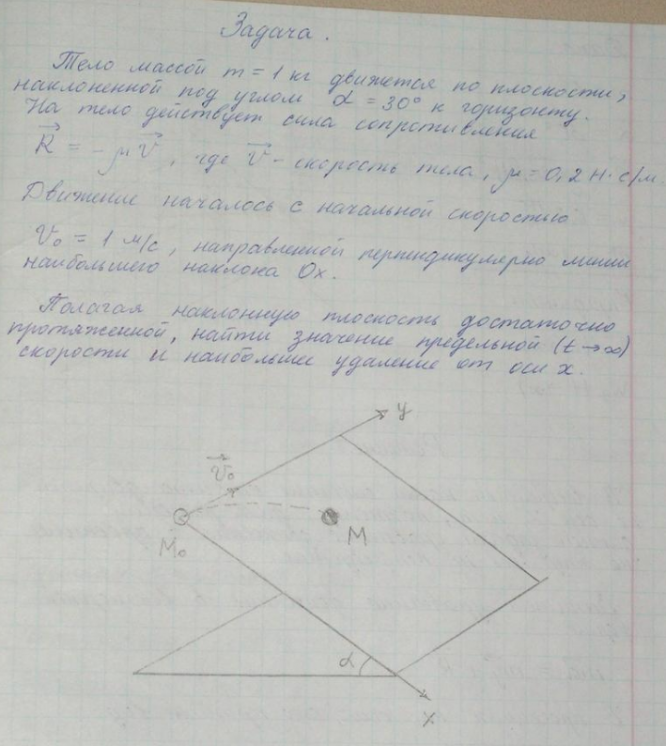 Задача.
Тело массой m = 1 кг движется по плоскости,
наклоненной под углом α = 30° к горизонту.
На тело действует сила сопротивления
R = -μv, где v - скорость тела, μ = 0,2 Н·с/м.
Движение началось с начальной скоростью
v₀ = 1 м/с, направленной перпендикулярно линии
наибольшего наклона Ox.
Полагая наклонную плоскость достаточно
протяженной, найти значение предельной (t → ∞)
скорости и наибольшее удаление от оси x.
y
v₀
M₀
M
α
x